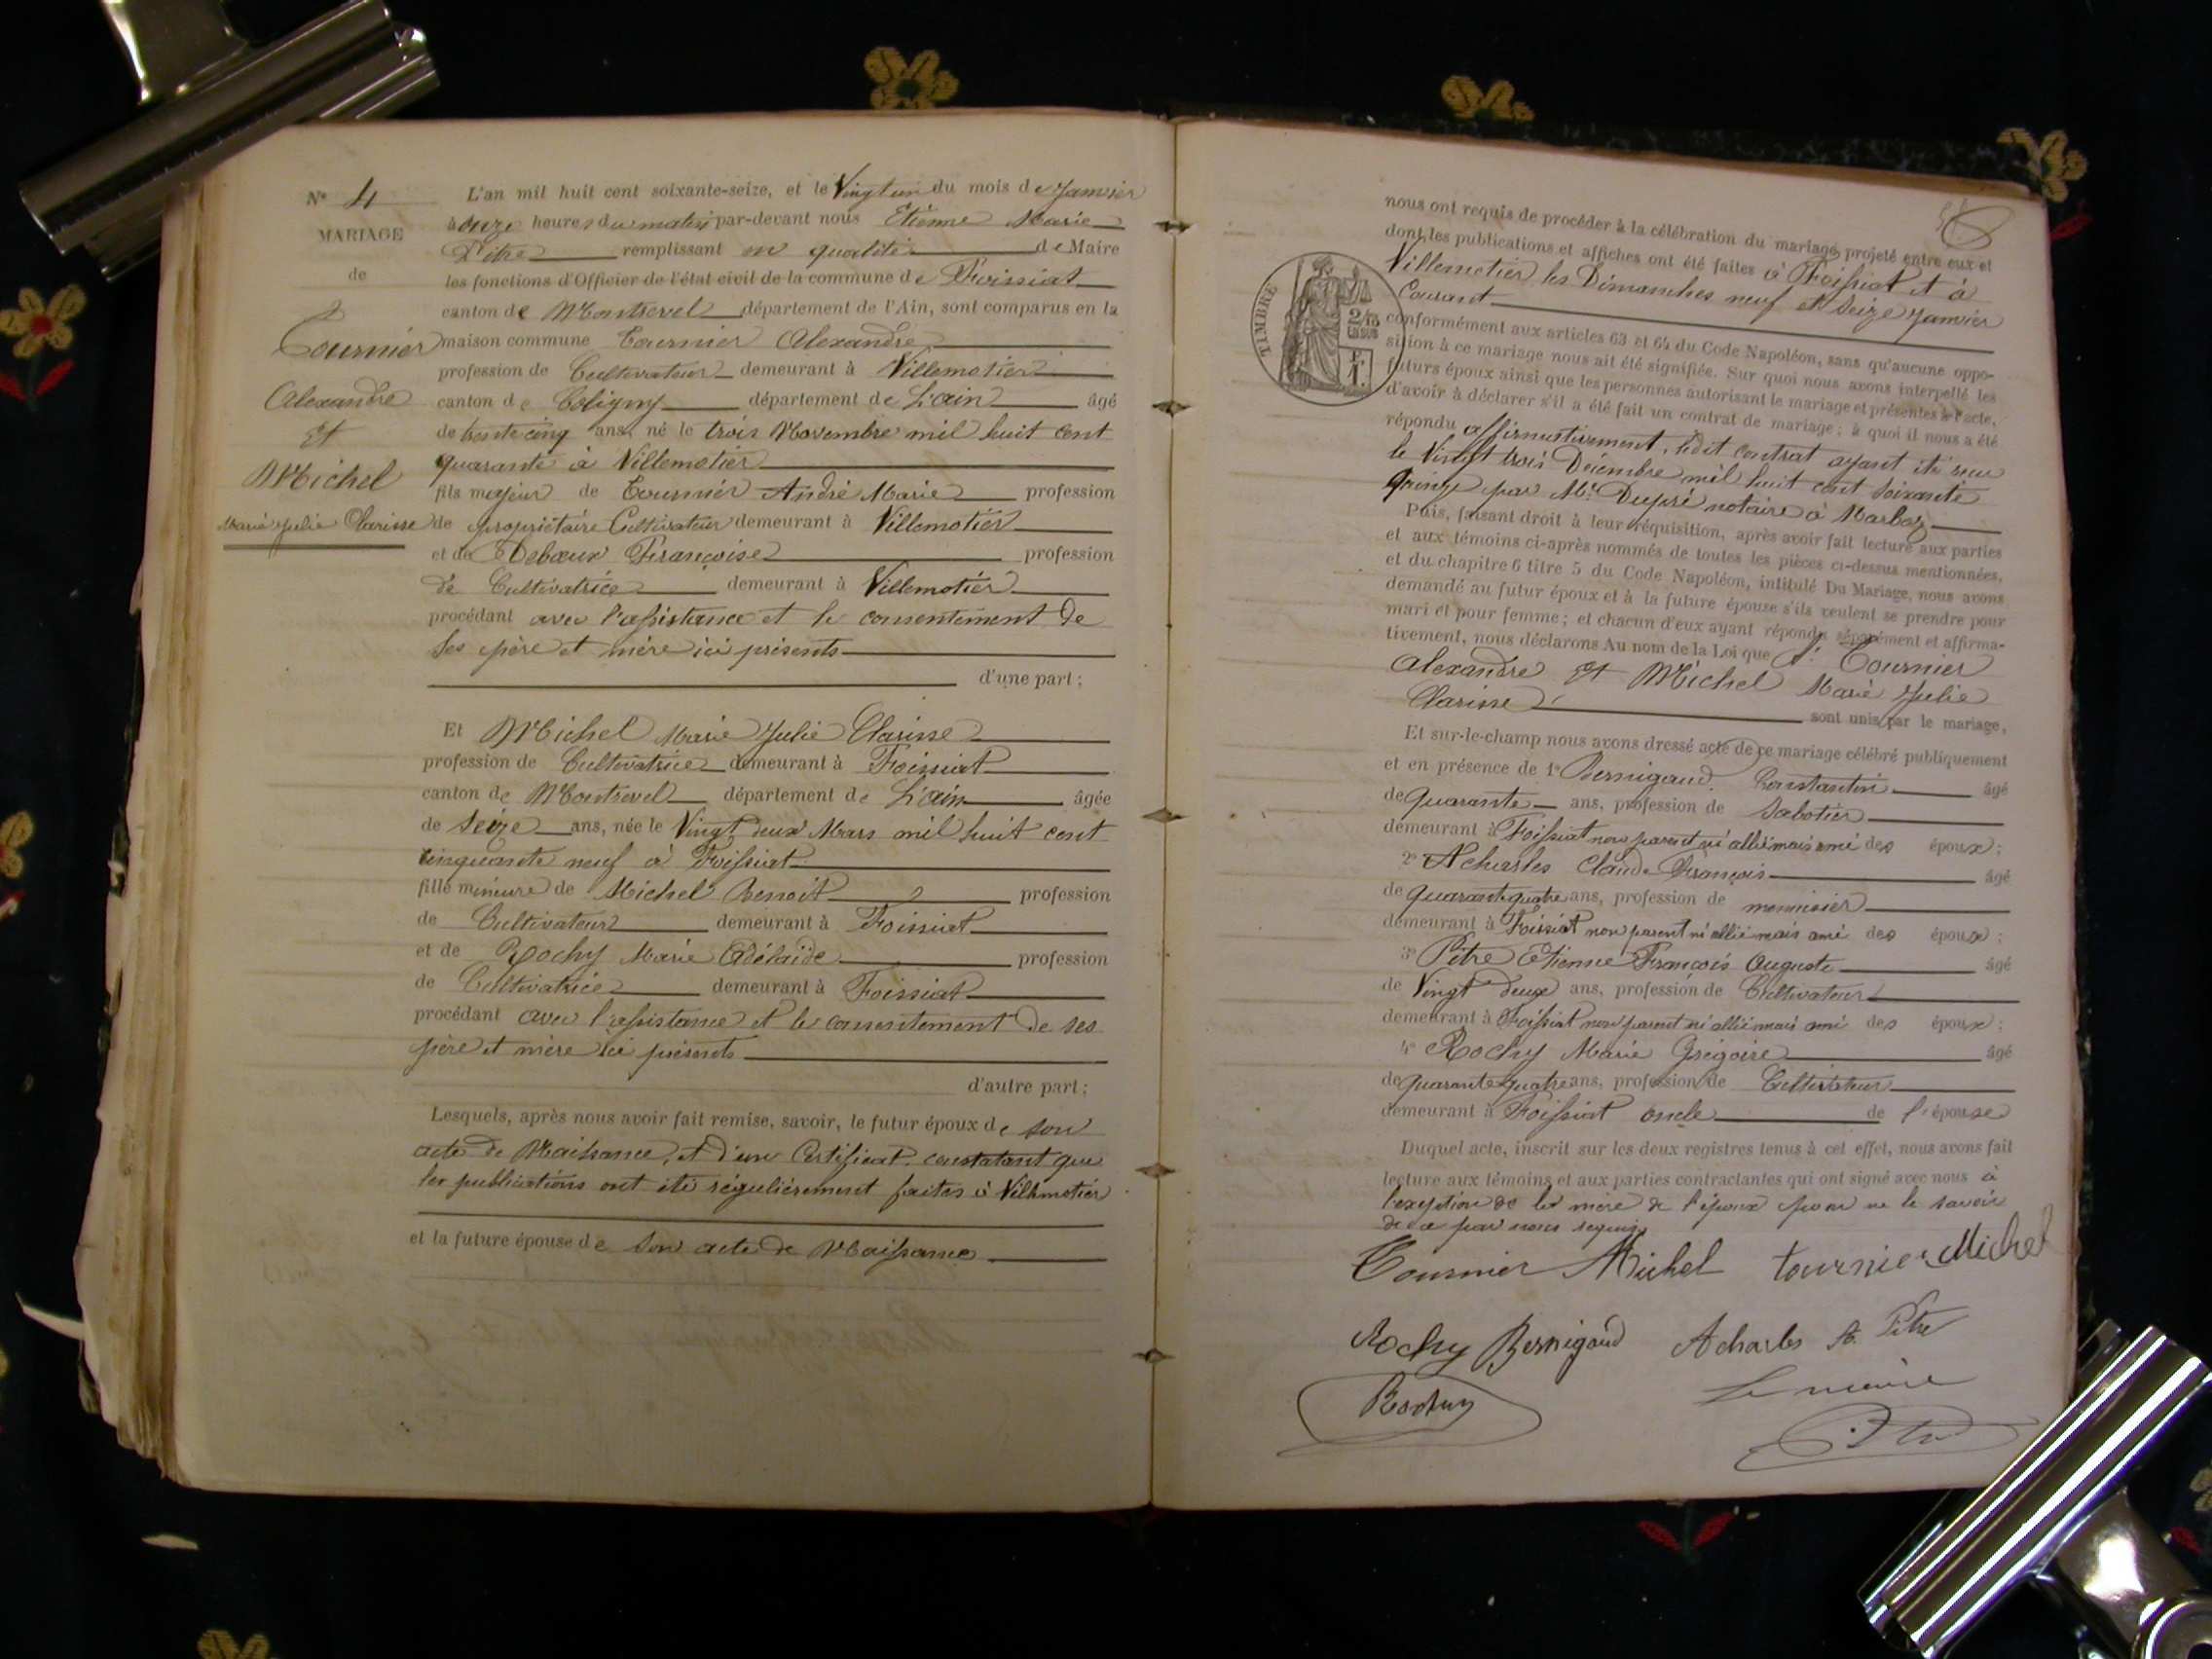 N° 4
MARIAGE
de
Tournier
Alexandre
Et
Michel
Marie Julie Clarisse
L'an mil huit cent soixante-seize, et le Vingt un du mois de Janvier
à onze heures du matin par-devant nous Etienne Marie
Pitre remplissant en qualité de Maire
les fonctions d'Officier de l'état civil de la commune de Foissiat
canton de Montrevel département de l'Ain, sont comparus en la
maison commune Tournier Alexandre
profession de Cultivateur demeurant à Villemotier
canton de Coligny département de L'ain âgé
de trente cinq ans, né le trois Novembre mil huit cent
quarante à Villemotier
fils majeur de Tournier André Marie profession
de propriétaire Cultivateur demeurant à Villemotier
et de Debœux Françoise profession
de Cultivatrice demeurant à Villemotier
procédant avec l'assistance et le consentement de
Ses père et mère ici présents
d'une part;
Et Michel Marie Julie Clarisse
profession de Cultivatrice demeurant à Foissiat
canton de Montrevel département de L'ain âgée
de seize ans, née le Vingt deux Mars mil huit cent
cinquante neuf à Foissiat
fille mineure de Michel Benoit profession
de Cultivateur demeurant à Foissiat
et de Rochy Marie Adélaïde profession
de Cultivatrice demeurant à Foissiat
procédant avec l'assistance et le consentement de ses
père et mère ici présents
d'autre part;
Lesquels, après nous avoir fait remise, savoir, le futur époux de son
acte de Naissance, et d'un Certificat constatant que
les publications ont été régulièrement faites à Villemotier
et la future épouse de son acte de Naissance
nous ont requis de procéder à la célébration du mariage projeté entre eux et
dont les publications et affiches ont été faites à Foissiat et à
Villemotier les Dimanches neuf et seize Janvier
Courant
TIMBRE
2/10
EN SUS
1 F.
conformément aux articles 63 et 64 du Code Napoléon, sans qu'aucune oppo-
sition à ce mariage nous ait été signifiée. Sur quoi nous avons interpellé les
futurs époux ainsi que les personnes autorisant le mariage et présentes à l'acte,
d'avoir à déclarer s'il a été fait un contrat de mariage; à quoi il nous a été
répondu affirmativement, ledit contrat ayant été reçu
le Vingt trois Décembre mil huit cent soixante
quinze par Me. Dupré notaire à Marboz
Puis, faisant droit à leur réquisition, après avoir fait lecture aux parties
et aux témoins ci-après nommés de toutes les pièces ci-dessus mentionnées,
et du chapitre 6 titre 5 du Code Napoléon, intitulé Du Mariage, nous avons
demandé au futur époux et à la future épouse s'ils veulent se prendre pour
mari et pour femme; et chacun d'eux ayant répondu séparément et affirma-
tivement, nous déclarons Au nom de la Loi que Tournier
Alexandre Et Michel Marie Julie
Clarisse sont unis par le mariage,
Et sur-le-champ nous avons dressé acte de ce mariage célébré publiquement
et en présence de 1° Bernigaud Constantin âgé
de quarante ans, profession de Sabotier
demeurant à Foissiat non parent ni allié mais ami des époux;
2° Acharles Claude François âgé
de quarante quatre ans, profession de menuisier
demeurant à Foissiat non parent ni allié mais ami des époux;
3° Pitre Etienne François Auguste âgé
de Vingt deux ans, profession de Cultivateur
demeurant à Foissiat non parent ni allié mais ami des époux;
4° Rochy Marie Grégoire âgé
de quarante quatre ans, profession de Cultivateur
demeurant à Foissiat oncle de l'épouse
Duquel acte, inscrit sur les deux registres tenus à cet effet, nous avons fait
lecture aux témoins et aux parties contractantes qui ont signé avec nous à
l'exception de la mère de l'époux pour ne le savoir
de ce par nous requis
Tournier Michel tournier Michel
Rochy Bernigaud Acharles A. Pitre
Rochy Le maire
Pitre